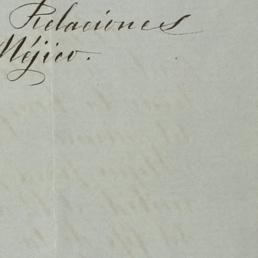 Relaciones
Méjico.